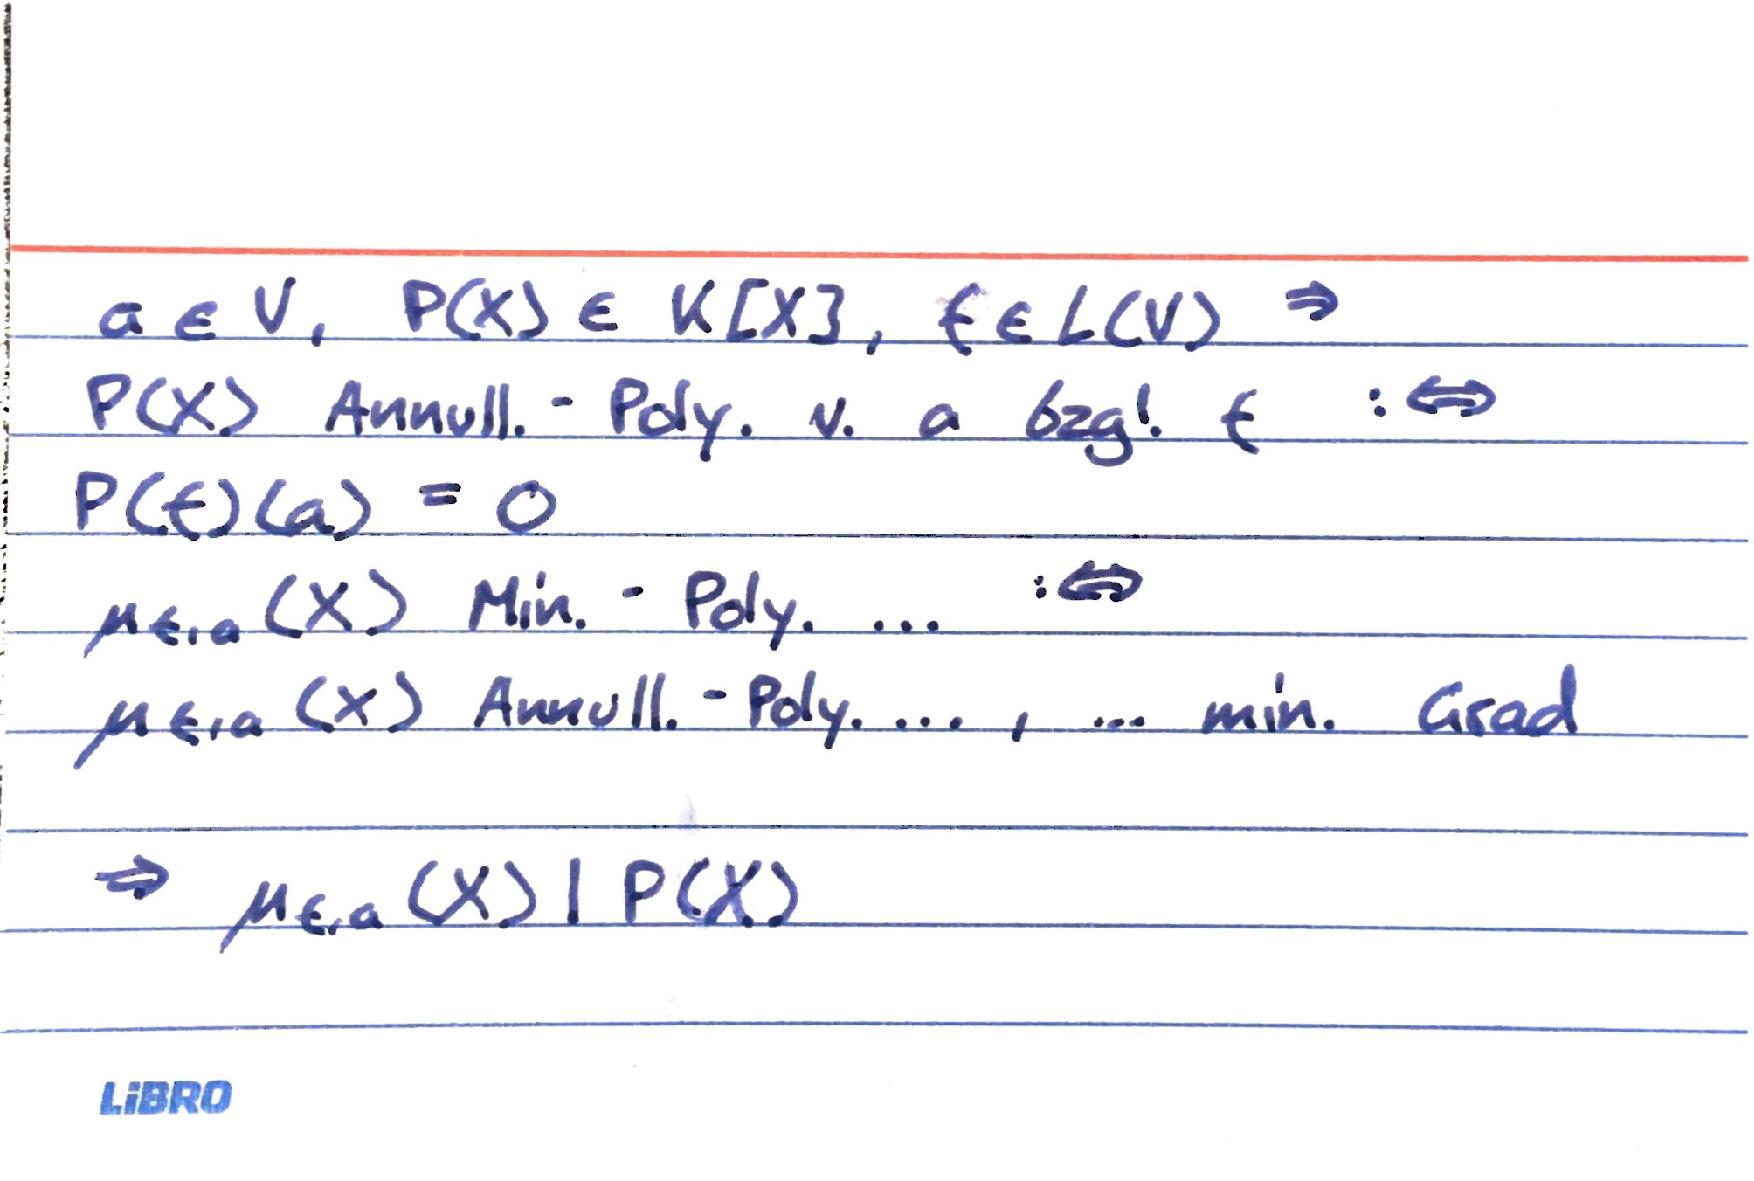 a ∈ V, P(X) ∈ K[X], f ∈ L(V) ⇒
P(X) Annull.-Poly. v. a bzgl. f :⇔
P(f)(a) = 0
μf,a (X) Min.-Poly. ... :⇔
μf,a (X) Annull.-Poly. ..., ... min. Grad
⇒ μf,a (X) | P(X)
LiBRO